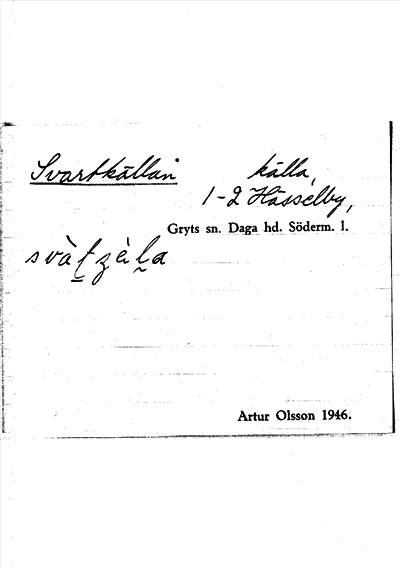 Svartkällan källa,
1-2 Hässelby,
Gryts sn. Daga hd. Söderm. l.
Artur Olsson 1946.